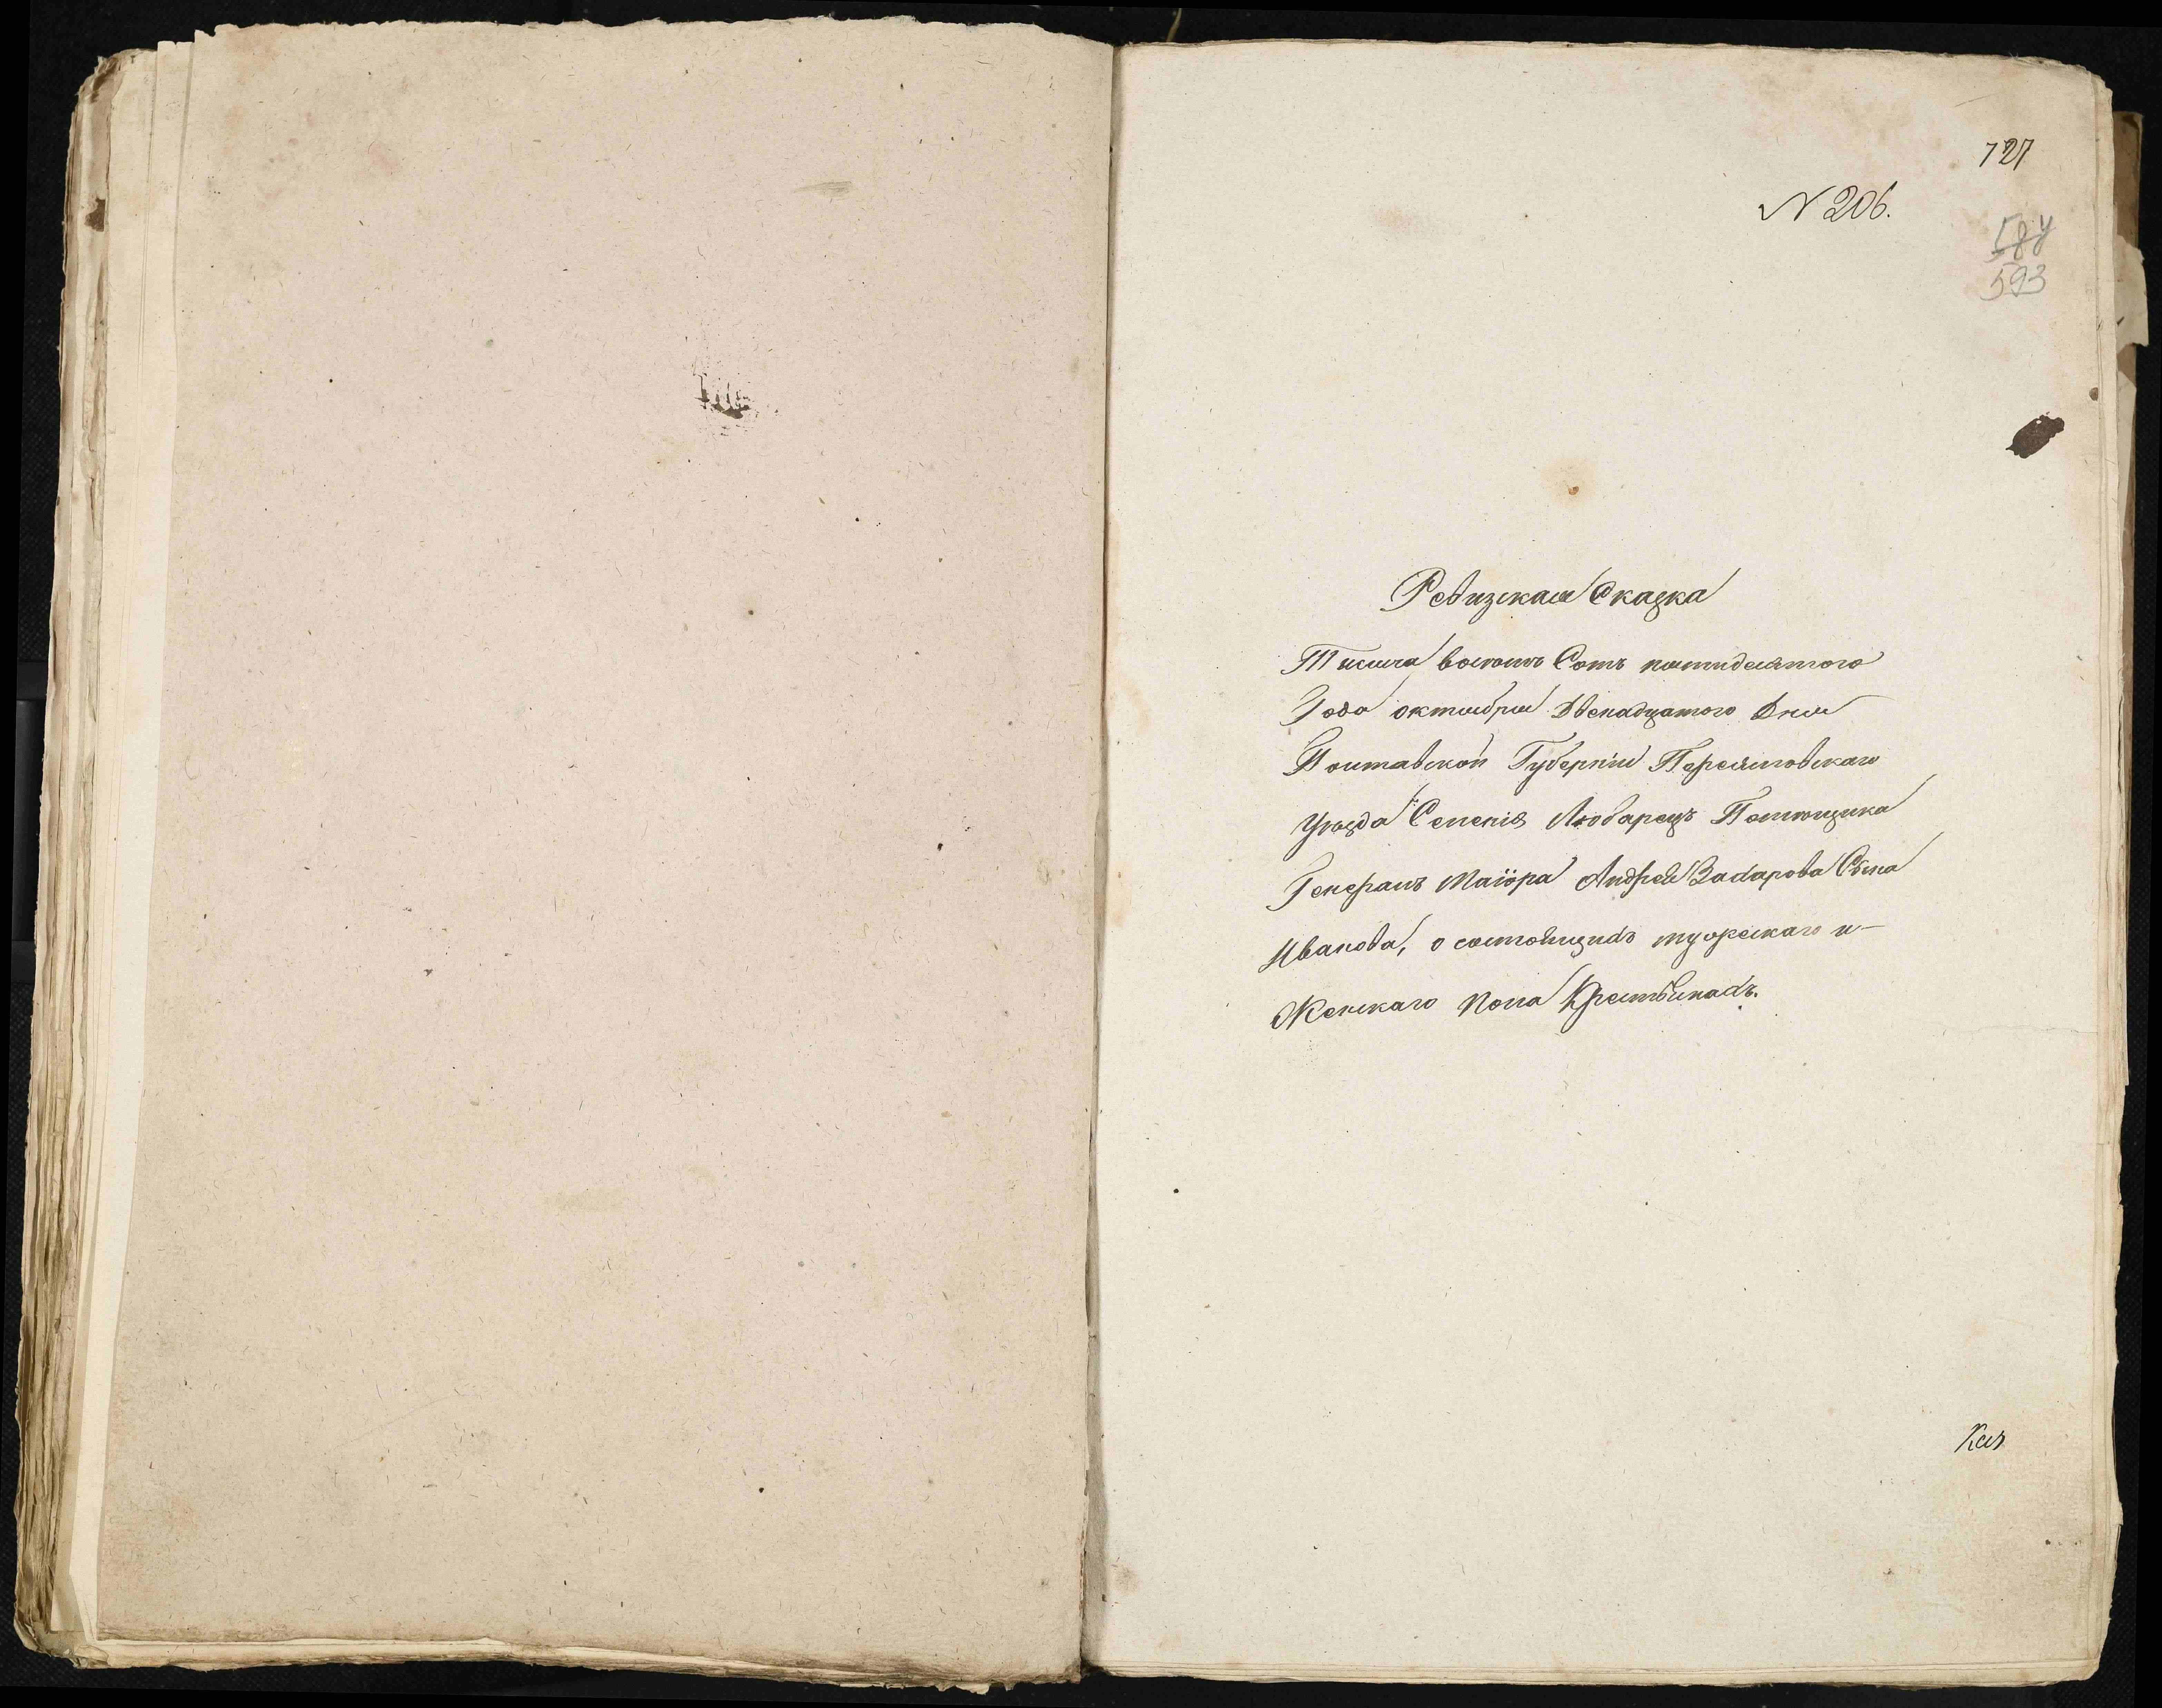 727
N 206.
584
593
Ревизская Сказка
Тысяча восемь Сотъ пятидесятого
Года октября двенадцатого Дня
Полтавской Губерніи Переясловскаго
уезда Селенія Любарецъ Помещика
Генералъ Маіора Андрея Захарова Сына
Иванова, о состоящихъ мужескаго и
Женскаго пола Крестьянахъ.